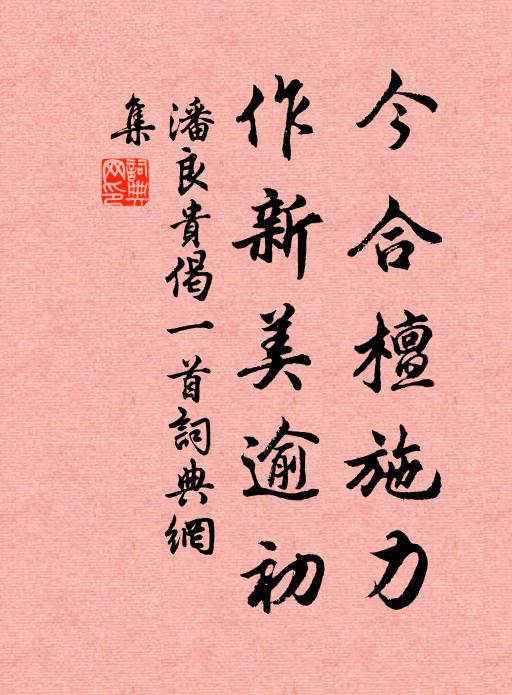 今合檀施力
作新美逾初
潘良貴偈一首詞典網
集
詞典網印